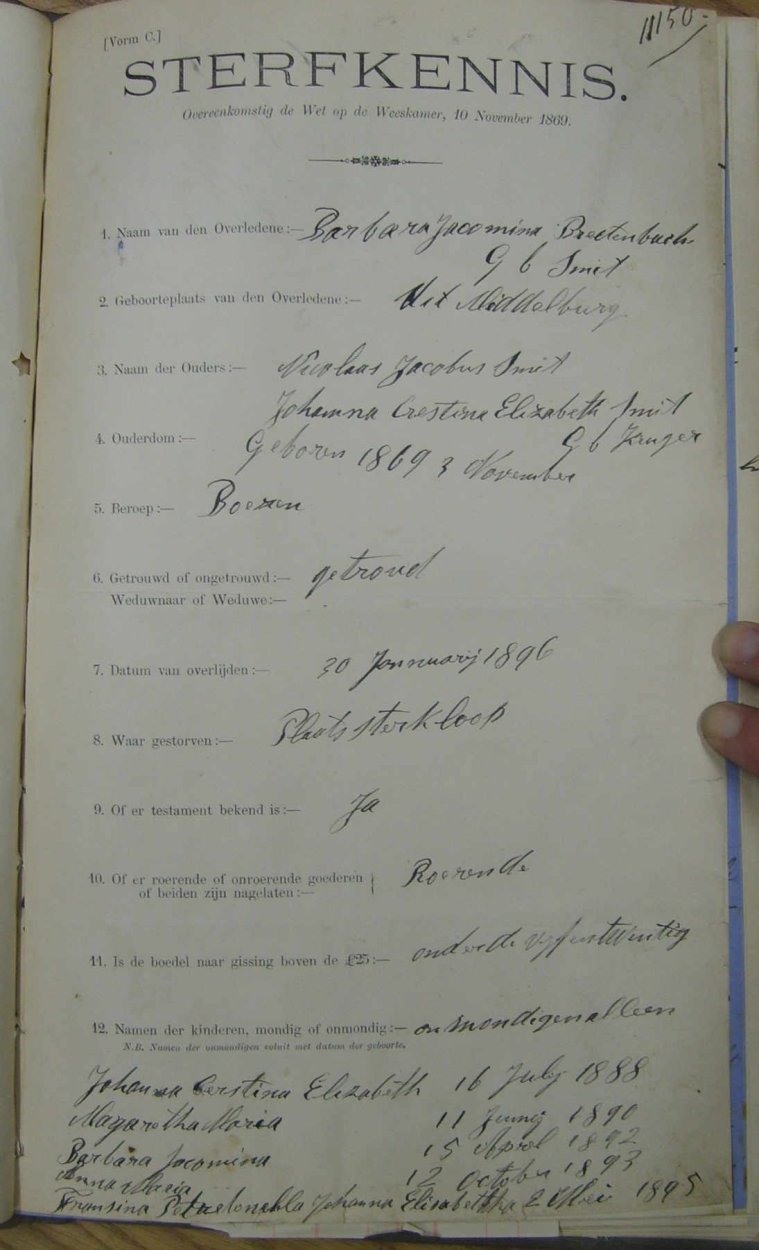 11150.-
[Vorm C.]
STERFKENNIS.
Overeenkomstig de Wet op de Weeskamer, 10 November 1869.
1. Naam van den Overledene:— Barbara Jacomina Breetenbach
G b Smit
2. Geboorteplaats van den Overledene:— Uit Middelburg
3. Naam der Ouders:— Nicolaas Jacobus Smit
Johanna Crestina Elizabeth Smit
G b Kruger
4. Ouderdom:— Geboren 1869 3 November
5. Beroep:— Boeren
6. Getrouwd of ongetrouwd:— getroud
Weduwnaar of Weduwe:—
7. Datum van overlijden:— 30 Jannuarij 1896
8. Waar gestorven:— Plaats sterkloop
9. Of er testament bekend is:— Ja
10. Of er roerende of onroerende goederen
of beiden zijn nagelaten:— Roerende
11. Is de boedel naar gissing boven de £25:— onder de vyfentwintig
12. Namen der kinderen, mondig of onmondig:— onmondigen alleen
N.B. Namen der onmondigen voluit met datum der geboorte.
Johanna Cerstina Elizabeth 16 July 1888
Magaretha Maria 11 Junij 1890
Barbara Jacomina 15 April 1892
Anna Maria 12 October 1893
Fransina Johanna Elisabettha 2 Mei 1895